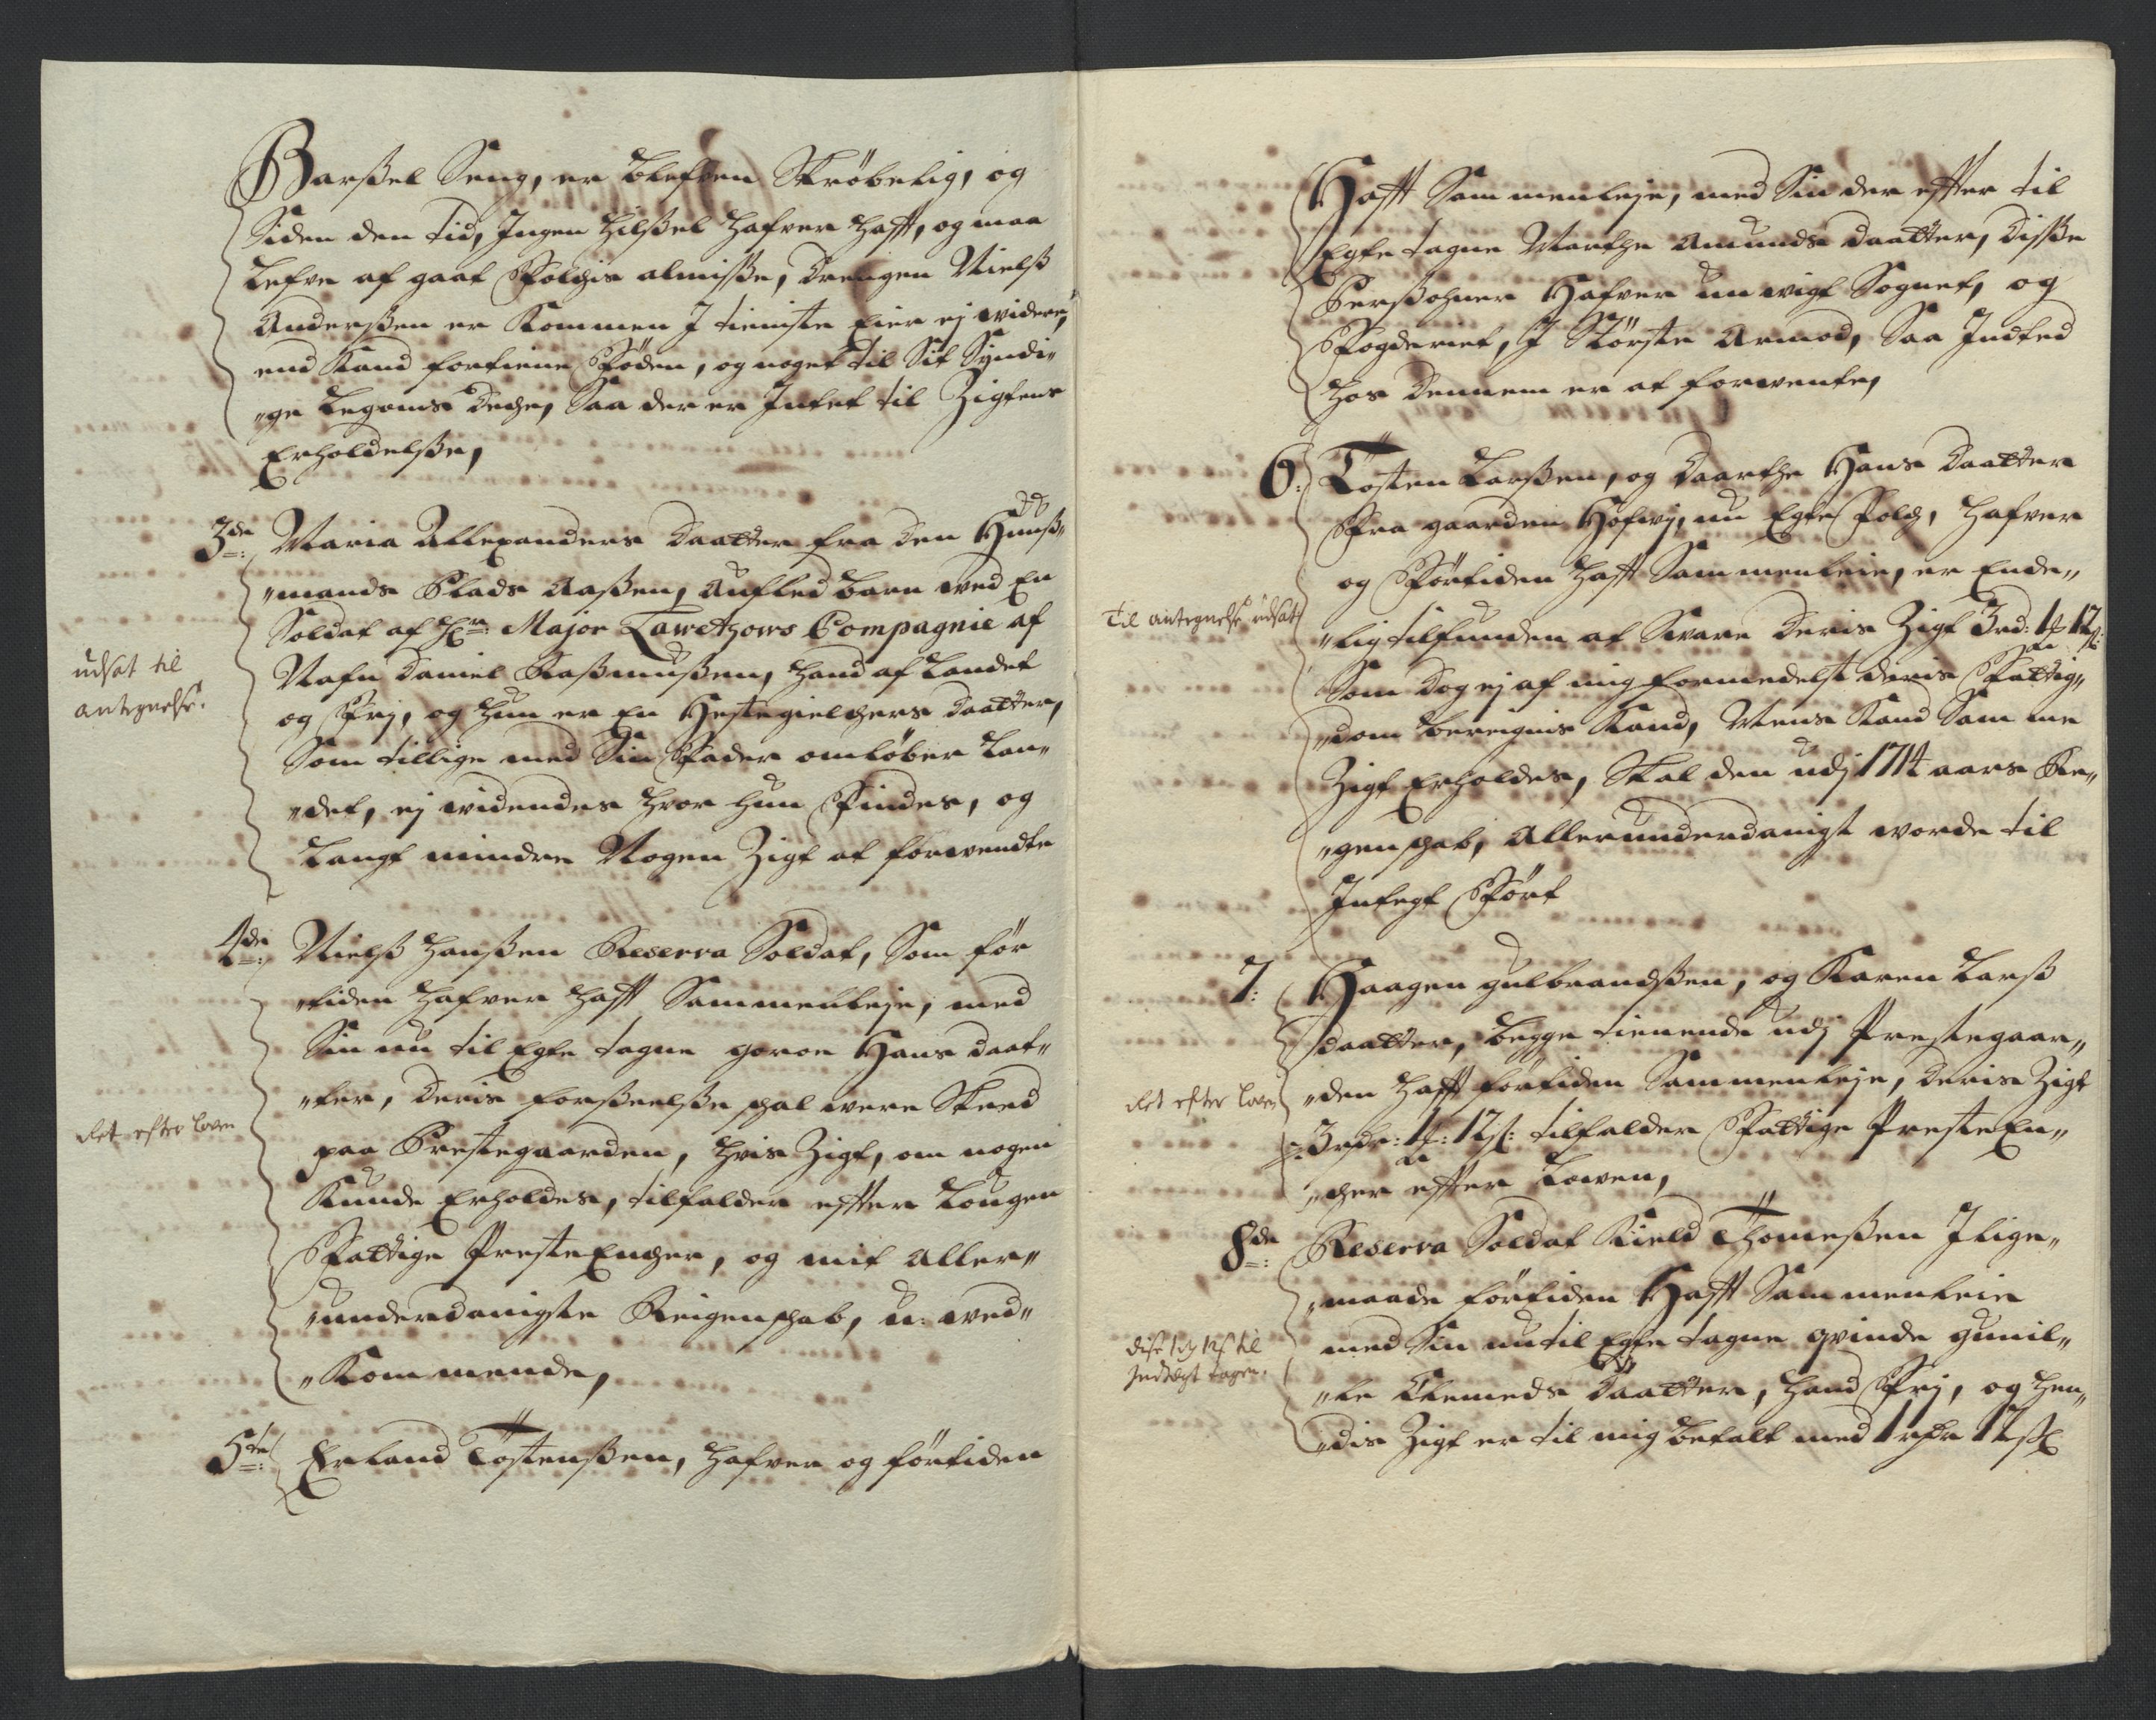 Barßel Seng, er blefven Skröbelig, og
Siden den tid, Ingen hilßel hafver hafft, og maa
Lefve af gaat Folchis almiße, Drengen Nielß
Anderßen er kommen I tieniste Eier ej videre,
end Kand fortiene Föden, og noget til Sit Syndi„
„ge Legoms Deche, Saa der er Intet til Zigtens
Erholdelße,
3de: Maria Allexanders Daatter fra den Huuß„
„mands Plads Aaßen, Aufled barn ved En
Soldat af Hr: Major Tawetzows Compagnie af
Nafn Daniel Raßmußen, hand af Landet
og Frj, og hun er En Hestegielchers Daatter,
Som tillige med Sin Fader omløber Lan„
„det, ej widendes hvor hun Findes, og
Langt mindre Nogen Zigt at forwendte
udsat til
antegnelse.
4de: Nielß Hanßen Reserva Soldat, Som för
„tiden hafver hafft Sammenleje, med
Sin nu til Egte tagne goroe Hans daat„
„ter, Deris forßeelße schal were Skeed
paa Prestegaarden, hvis Zigt, om nogen
Kunde Erholdes, tilfalder effter Lougen
Fattige PresteEncher, og mit aller„
„underdanigste Reigenschab, u: wed„
„Kommende,
Ret efter loven
5te: Erland Töstenßen, hafver og förtiden
Hafft Sammenleje, med Sin der effter til
Egte tagne Marthe Amunds Daatter, Diße
Perßohner Hafver un wigt Sognet, og
Fogderiet, I Störste Armod, Saa Indted
hos Dennem er at forwente,
6: Tösten Larßen, og Daarthe Hans Daatter
Fra gaarden Hofwj, nu Egte Folch, hafver
og Förtiden hafft Sammenleie, er Ende„
„lig tilfunden at Svare Deris Zigt 3rd: 1 12
Som Dog ej af mig formedelst deris Fattig„
„dom bereignis Kand, Mens Kand Samme
Zigt Erholdes, Skal den udj 1714 aars Re„
„genschab, Allerunderdanigst worde til
Indtegt Fört
Til antegnelse udsat
7: Haagen gulbrandßen, og Karen Larß
daatter, begge tienende udj Prestegaar„
„den hafft förtiden Sammenleje, Deris Zigt
3rdr: 1: 12: tilfalder Fattige PresteEn„
„cher effter Lowen,
Ret efter loven
8de: Reserva Soldat Kield Thomeßen I lige„
„maade förtiden Hafft Sammenleie
med Sin nu til Egte tagne qvinde gunil„
„le Clemeds Daatter, hand Frj, og hen„
„dis Zigt er til mig betalt med 1rdr 12ß
dise til
Indtegt tagen.